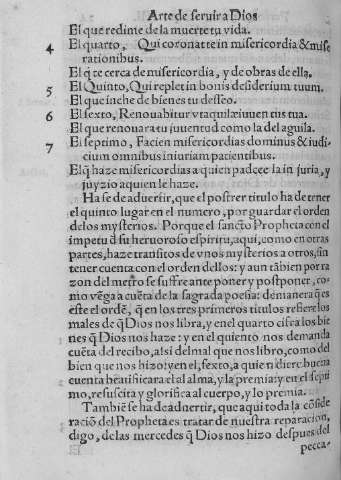 Arte de seruir a Dios
El que redime de la muerte tu vida.
4 El quarto, Qui coronat te in misericordia & mise
rationibus.
El q̃ te cerca de misericordia, y de obras de ella.
5 El Quinto, Qui replet in bonis desiderium tuum.
El que inche de bienes tu desseo.
6 El sexto, Renouabitur vt aquilæ iuuentus tua.
El que renouara tu juuentud como la del aguila.
7 El septimo, Facien misericordias dominus & iudi
cium omnibus iniuriam pacientibus.
El q̃ haze misericordias a quien padece la injuria, y
juyzio a quien le haze.
Ha se de aduertir, que el postrer titulo ha de tener
el quinto lugar en el numero, por guardar el orden
de los mysterios. Porque el sancto Propheta con el
impetu d̃ su heruoroso espiritu, aqui, como en otras
partes, haze transitos de vnos mysterios a otros, sin
tener cuenta con el orden dellos: y aun tãbien por ra
zon del metro se suffre ante poner y postponer, co-
mo vẽga a cuẽta de la sagrada poesia: de manera q̃ es
este el ordẽ, q̃ en los tres primeros titulos refiere los
males de q̃ Dios nos libra, y en el quarto cifra los bie
nes q̃ Dios nos haze: y en el quiento nos demanda
cuẽta del recibo, alsi del mal que nos libro, como del
bien que nos hizo: y en el, sexto, a quien diere buena
cuenta beatificara el alma, y la premia: y en el septi
mo, resuscita y glorifica al cuerpo, y lo premia.
Tambiẽ se ha de aduertir, que aqui toda la cõside
raciõ del Propheta es tratar de nuestra reparacion,
digo, de las mercedes q̃ Dios nos hizo despues del
pecca-